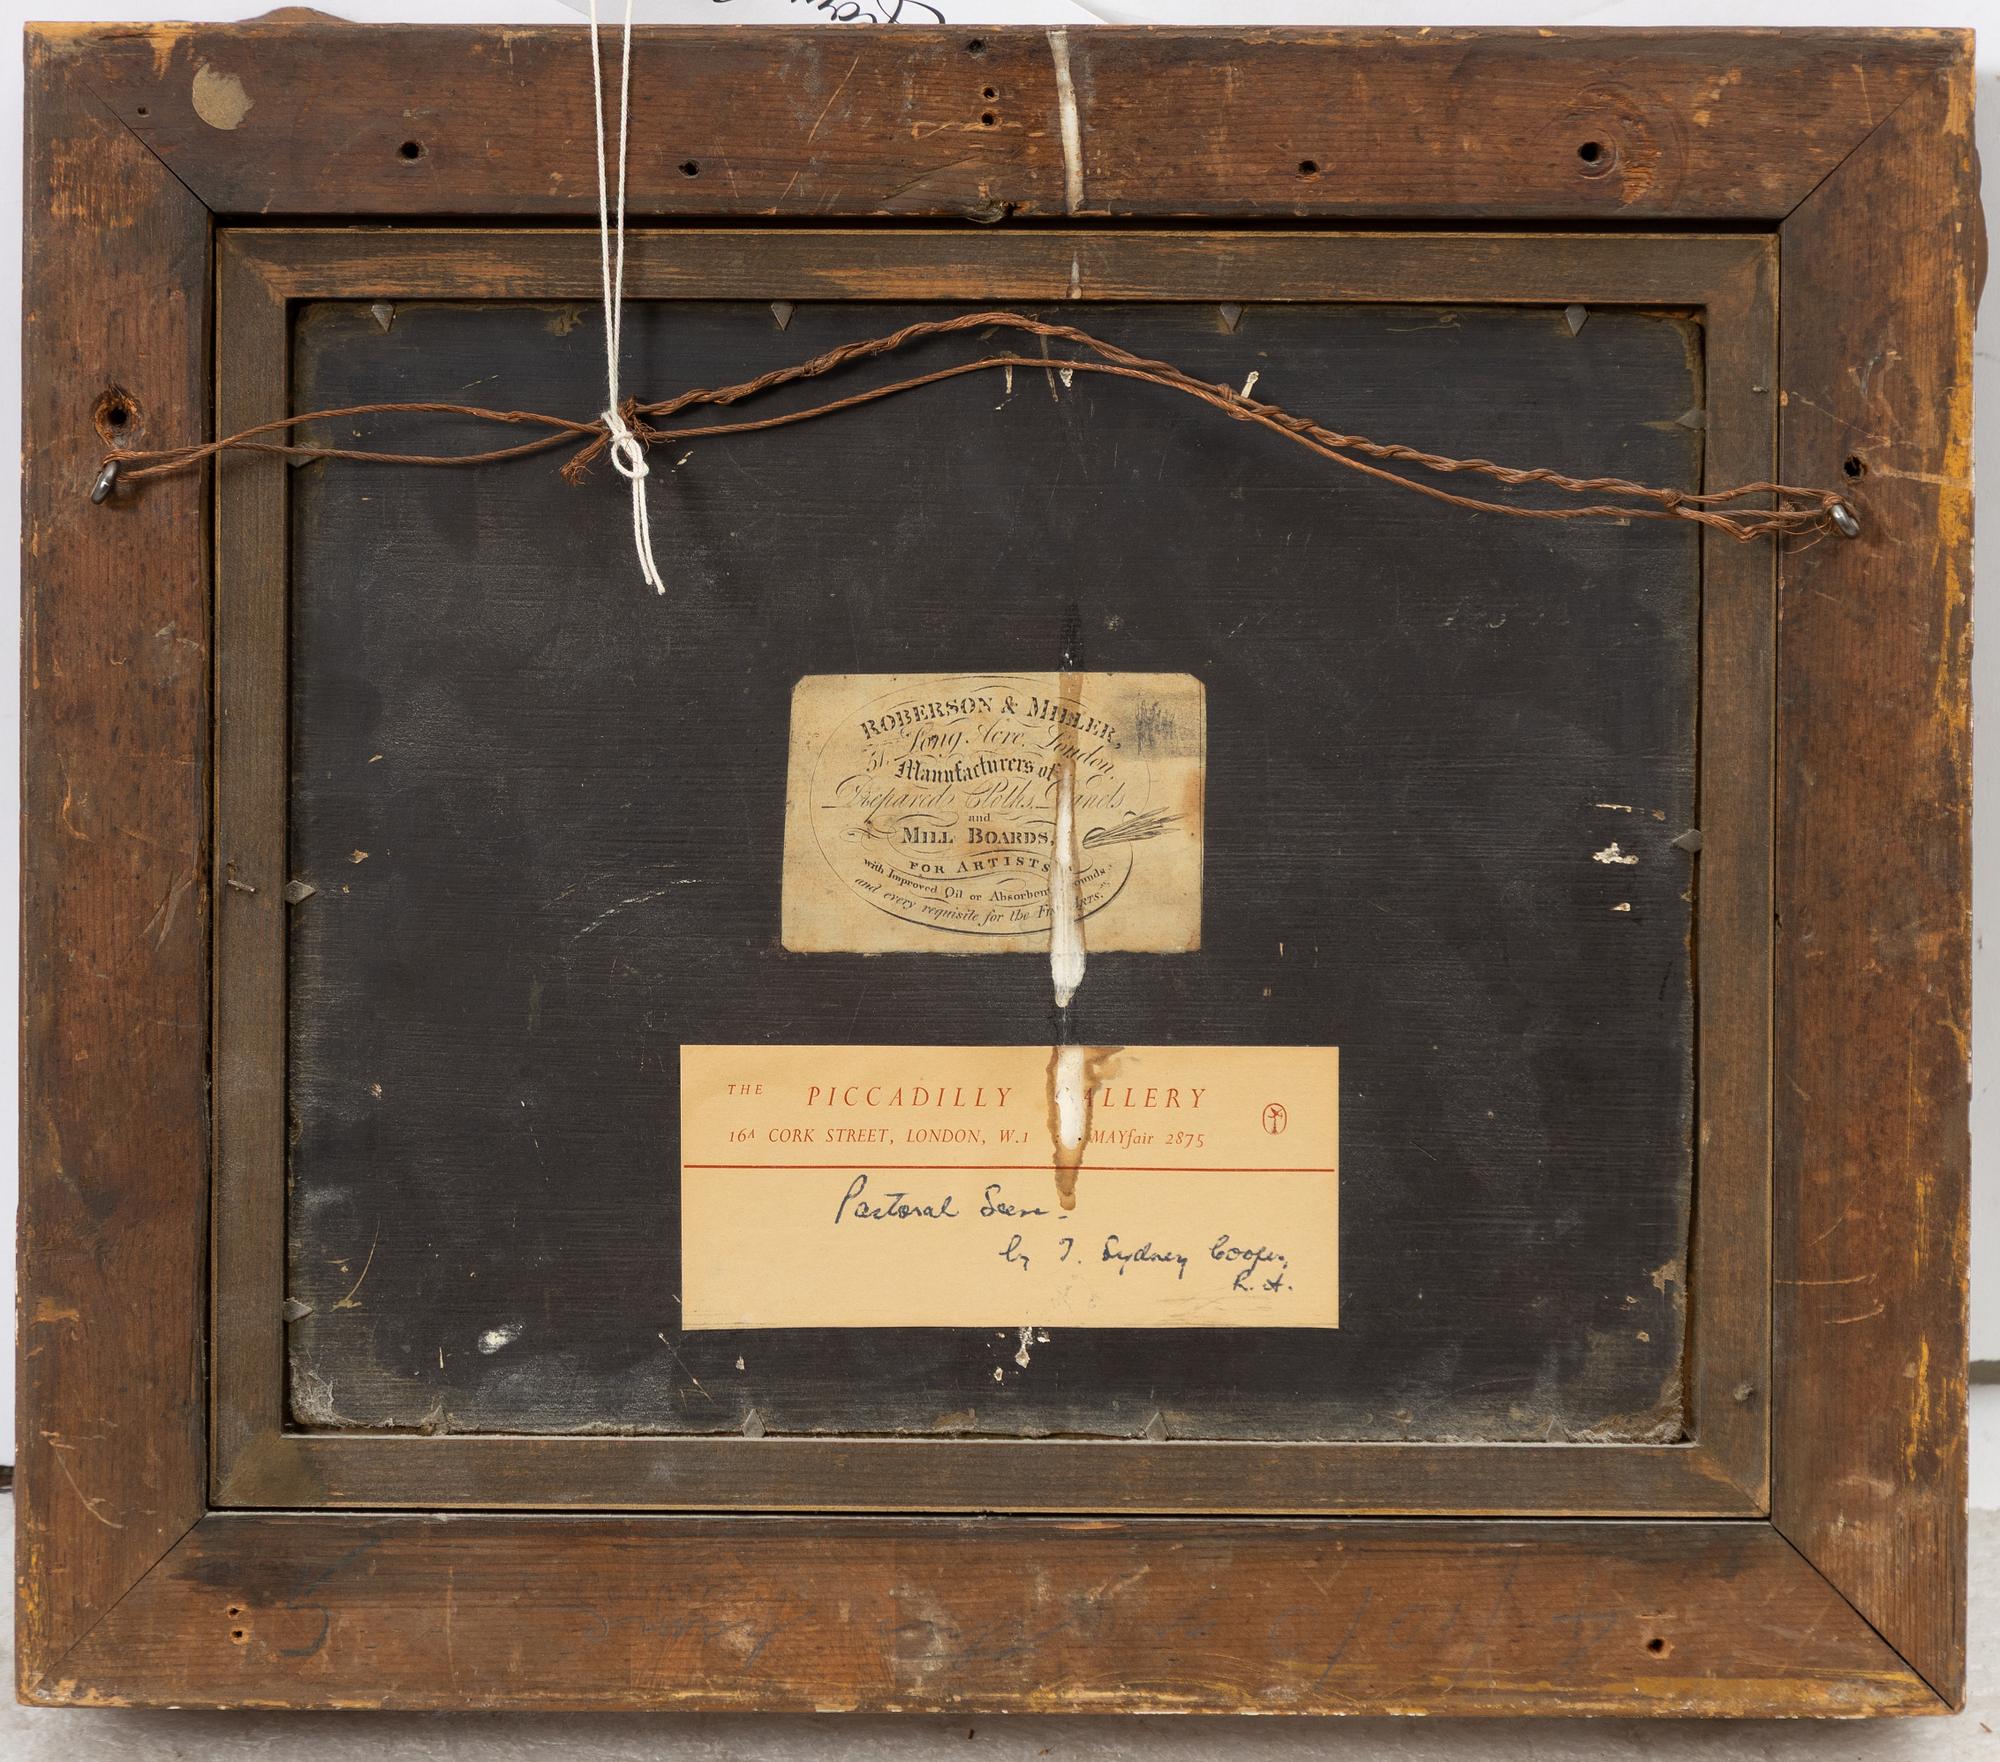 ROBERSON & MILLER,
51. Long Acre, London,
Manufacturers of
Prepared Cloths, Panels
and
MILL BOARDS,
FOR ARTISTS
with Improved Oil or Absorbent
and every requisite for the Fine ARTS.
THE PICCADILLY ALLERY
16A CORK STREET, LONDON, W.1 MAYfair 2875
Pastoral Scene
by T. Sydney Cooper,
R.A.